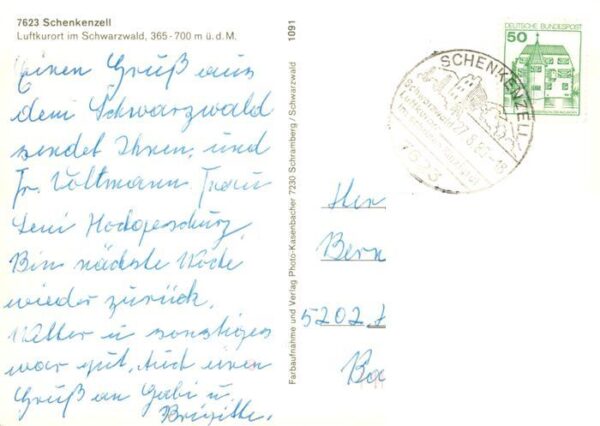 7623 Schenkenzell
Luftkurort im Schwarzwald, 365-700 m ü.d.M.
Einen Gruß aus
dem Schwarzwald
sendet Ihnen, und
Fr. Voltmann Frau
Leni
Bin nächste Woche
wieder zurück.
Wetter u sonstiges
war gut, Auch einen
Gruß an Gabi u.
Brigitte.
1091
Farbaufnahme und Verlag Photo-Kasenbacher 7230 Schramberg / Schwarzwald
SCHENKENZELL
Luftkurort
7623
50
DEUTSCHE BUNDESPOST
Her
Bern
5202
Ba